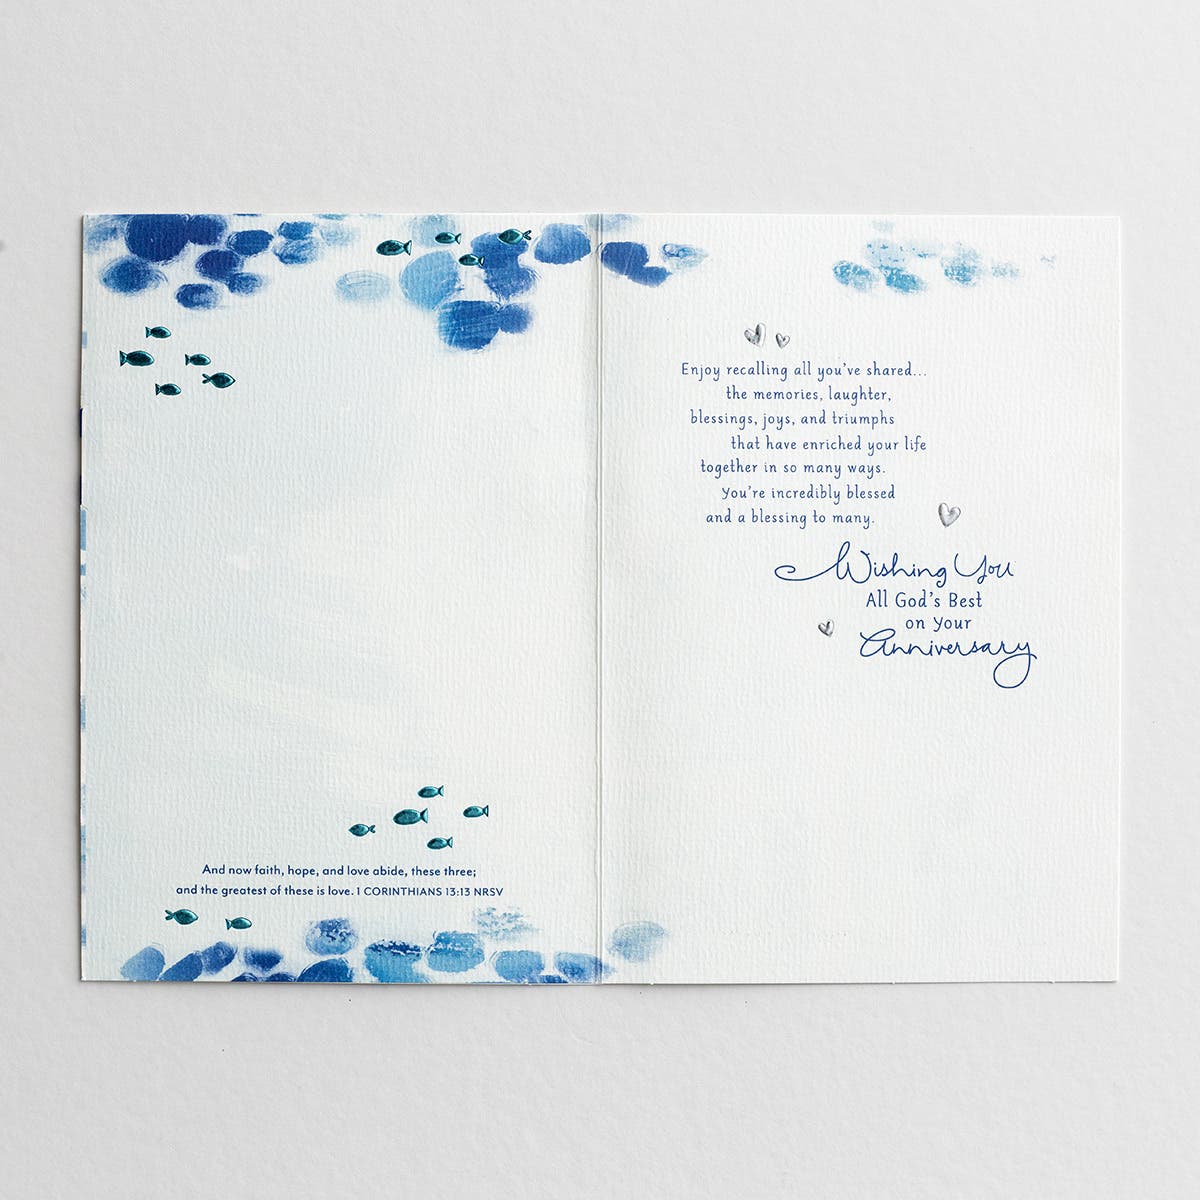 And now faith, hope, and love abide, these three;
and the greatest of these is love. 1 CORINTHIANS 13:13 NRSV
Enjoy recalling all you've shared...
the memories, laughter,
blessings, joys, and triumphs
that have enriched your life
together in so many ways.
You're incredibly blessed
and a blessing to many.
Wishing You
All God's Best
on Your
Anniversary